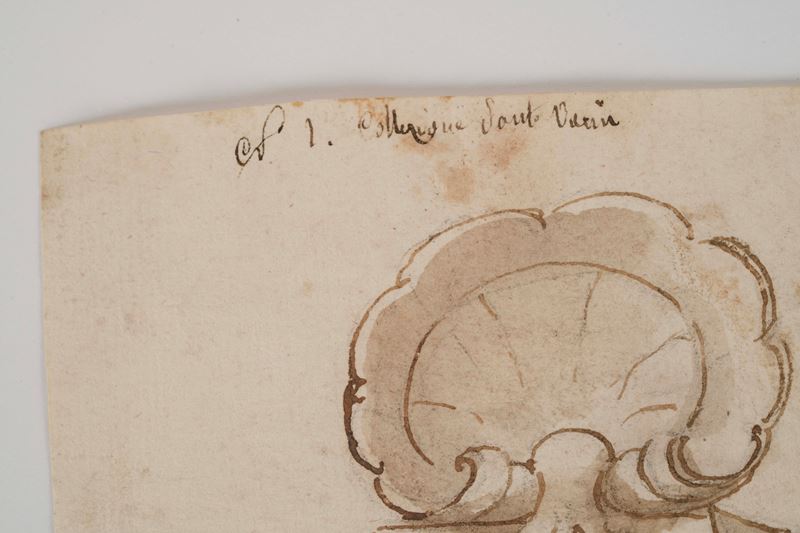 N 1. Collezione Sant Varni